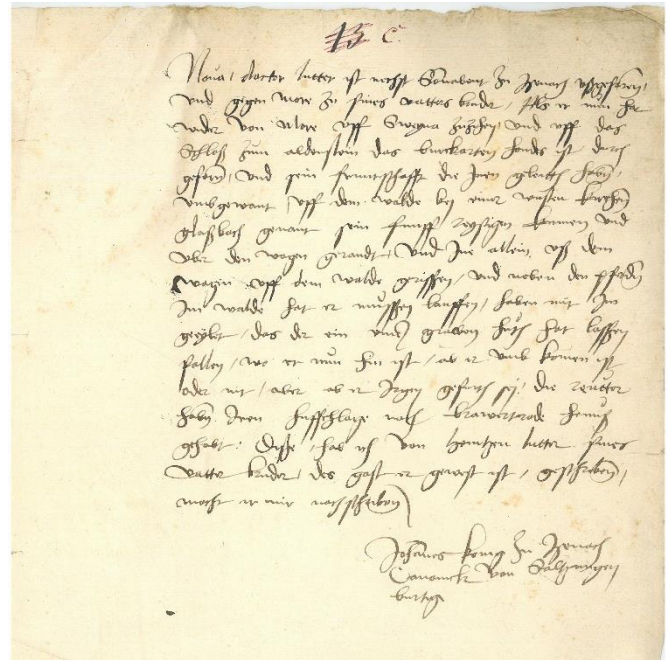 13 C.
Nova, doctor lutter ist nechst Sonabent zu Isenach ußgefaren,
und gegen More zu sines vatters bruder, Als er nun hat
wider von More uff zyehen, und uff das
Schloß zum aldenstein das burckarten hundes ist durch
gefarn, und sein fruntschafft die Inen gleitet habn,
umbgewant, uff dem walde bey einer wusten kirchen
glaßbach genant sein funff reysigen kummen und
uber den wagen gerandt, und Ine allein, uß dem
wagen uff dem walde griffen, und neben den pferden
Im walde hat er mussen lauffen, haben mit Im
geeylet, das der ein einen grawen huth hat lassen
fallen, wo er nun hin ist, ab er umb komen ist
oder nit, aber ab er Irgen gefurt sy, die reutter
habn Iren huffschlage nach brawertrode hinuß
gehabt. Disse, hab ich von heintzen lutter sines
vatter bruder, des gast er gewest ist, geschriben,
mocht er mir nachschriben
Johannes konig zu Isenach
Canonick von Saltzungen
burtig